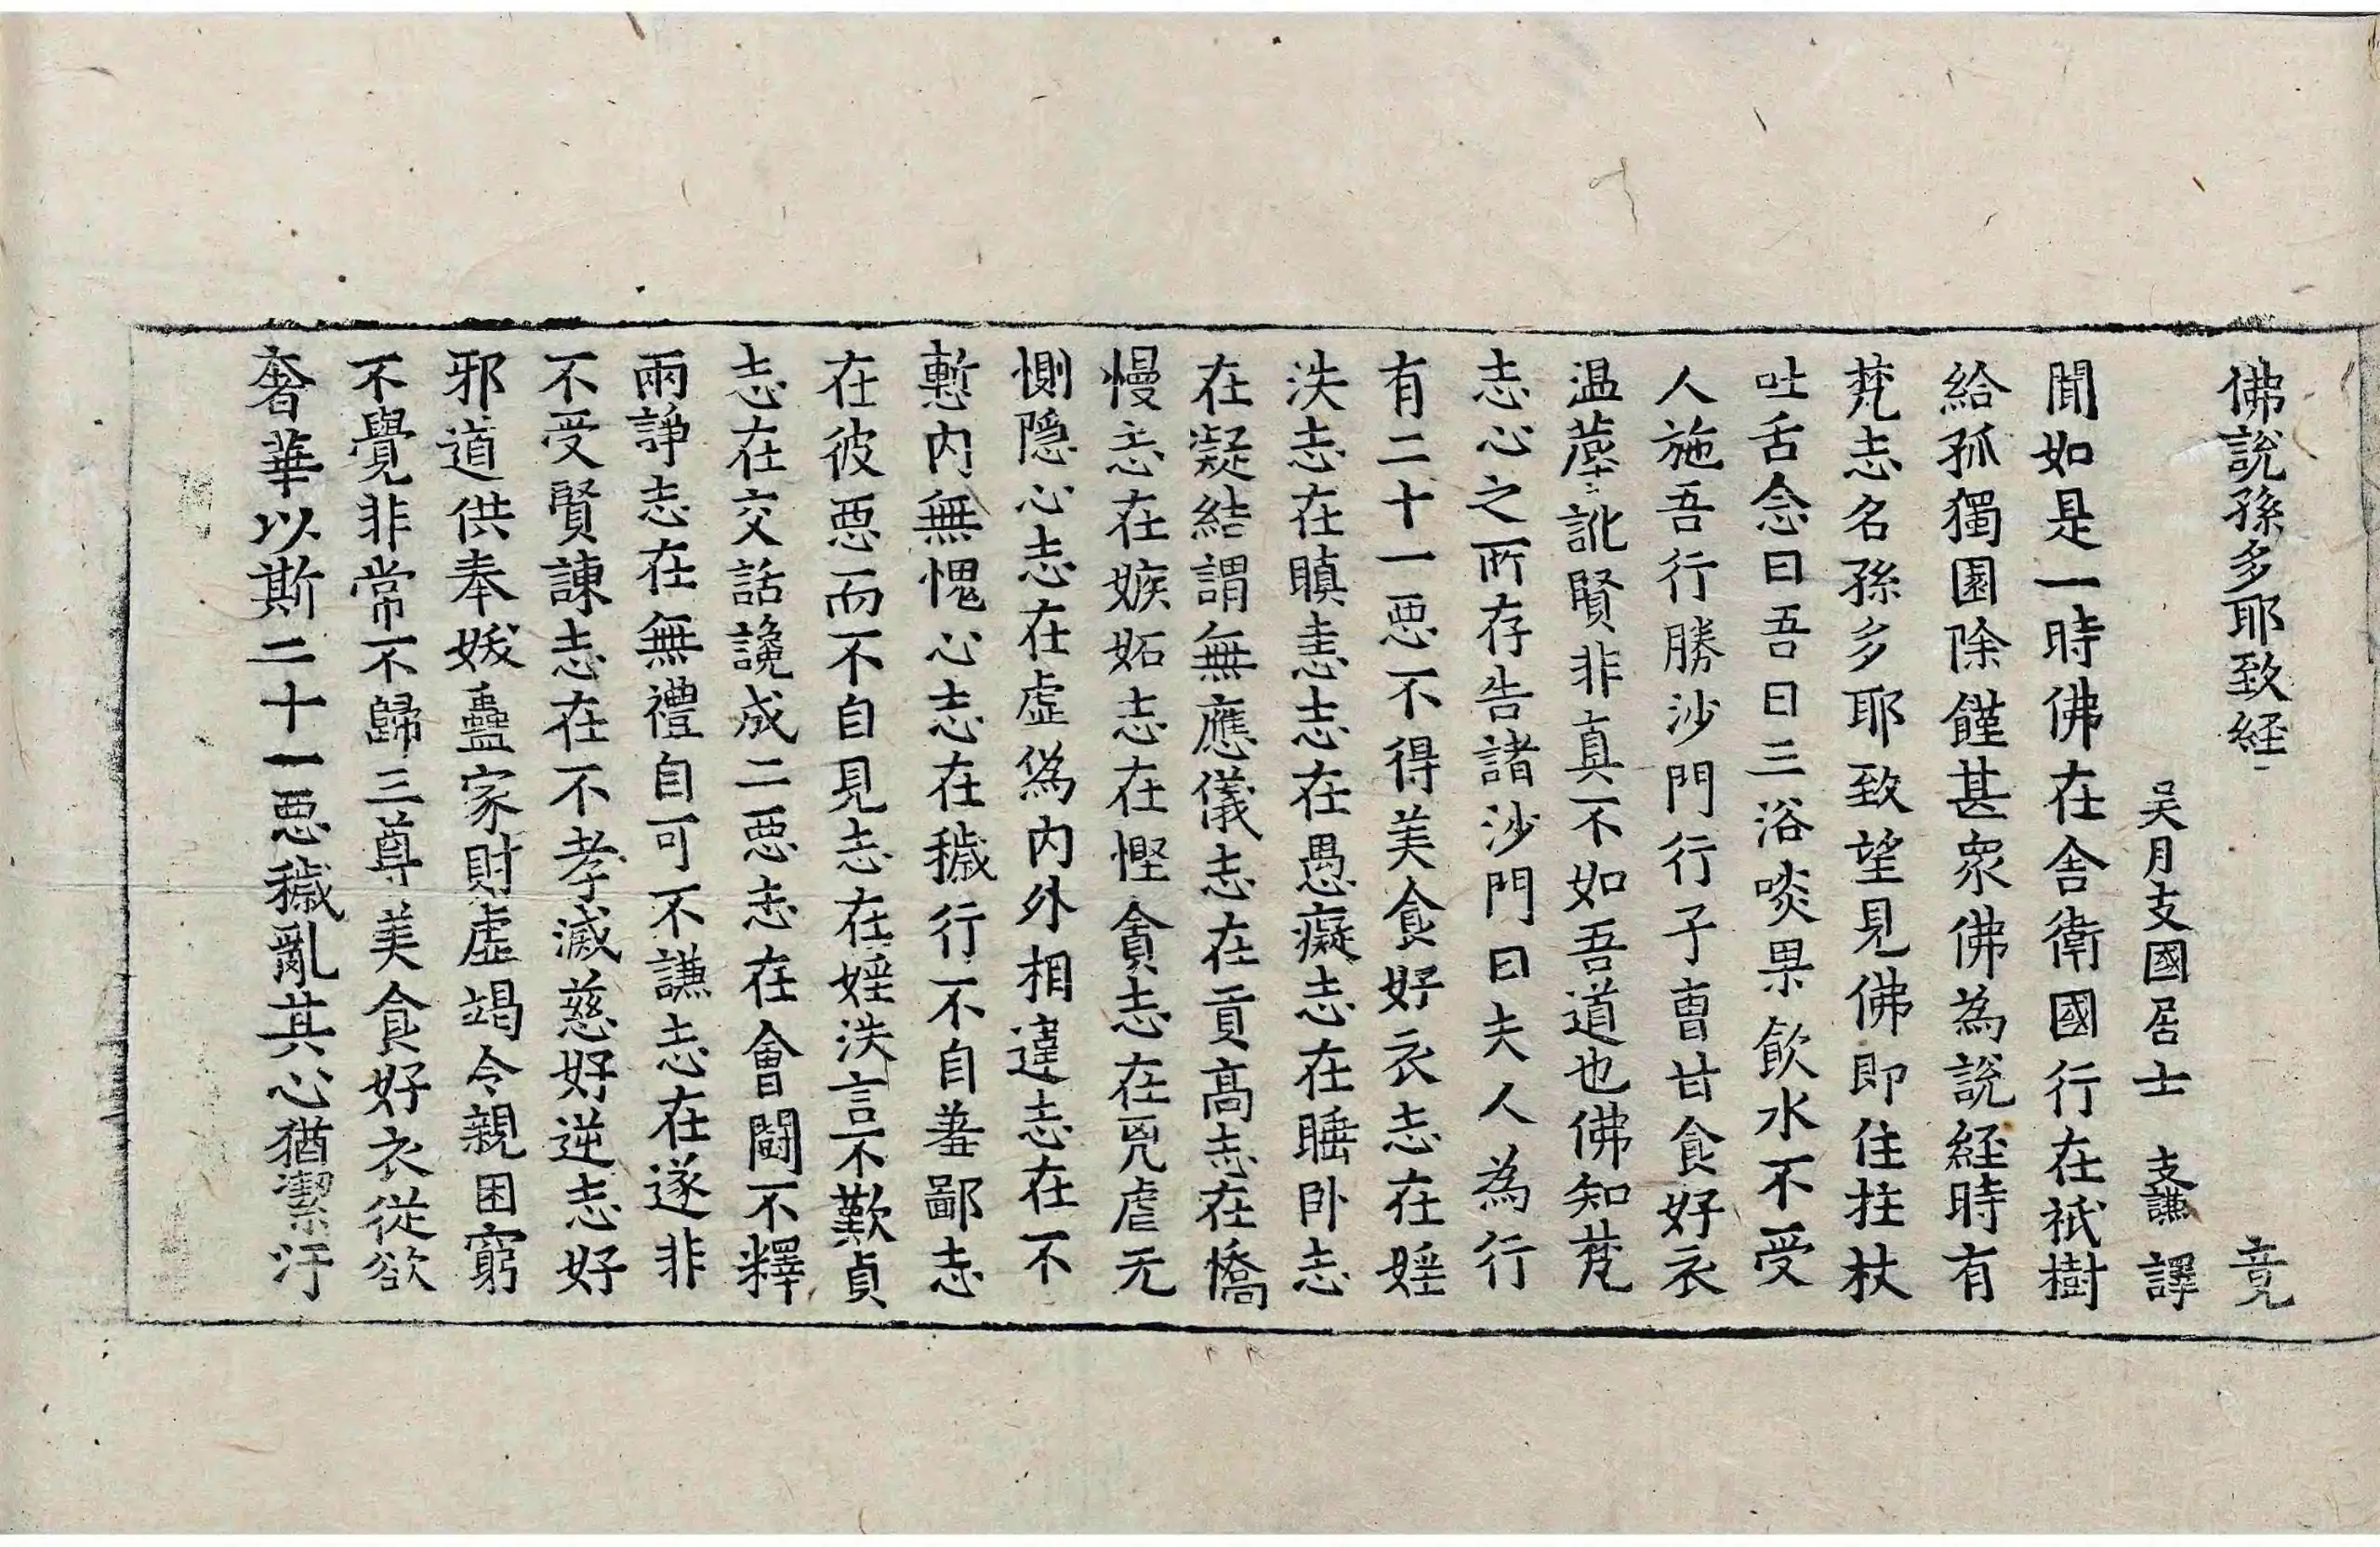 佛說孫多耶致経 竟
吴月支國居士 支謙 譯
聞如是一時佛在舍衛國行在祇樹
給孤獨園除饉甚衆佛為說経時有
梵志名孫多耶致望見佛即住拄杖
吐舌念曰吾日三浴啖果飲水不受
人施吾行勝沙門行子曹甘食好衣
温蓙訿賢非真不如吾道也佛知梵
志心之所存告諸沙門曰夫人為行
有二十一悪不得美食好衣志在婬
泆志在瞋恚志在愚癡志在睡卧志
在凝結謂無應儀志在貢高志在憍
慢志在嫉妬志在慳貪志在兇虐无
惻隠心志在虚偽內外相違志在不
慙內無愧心志在穢行不自羞鄙志
在彼悪而不自見志在婬泆言不歎貞
志在交話讒成二悪志在會鬪不釋
兩諍志在無禮自可不謙志在遂非
不受賢諌志在不孝滅慈好逆志好
邪道供奉妭蠱家財虚竭令親困窮
不覺非常不歸三尊美食好衣從欲
奢華以斯二十一悪穢亂其心猶潔汙